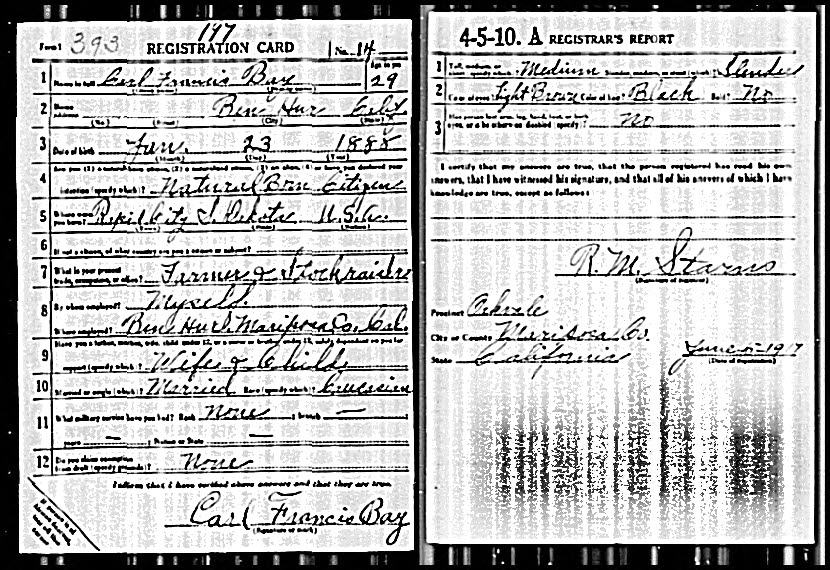 197
Form 1 393 REGISTRATION CARD No. 14
Age in yrs
1 Name in full Carl Francis Bay 29
2 Home address Ben Hur Calif
(No.) (Street) (City) (State)
3 Date of birth Jan. 23 1888
(Month) (Day) (Year)
4 Are you (1) a natural-born citizen, (2) a naturalized citizen, (3) an alien, (4) or have you declared your
intention (specify which)? Natural Born Citizen
5 Where were you born? Rapid City S. Dakota U.S.A.
(Town) (State) (Nation)
6 If not a citizen, of what country are you a citizen or subject?
7 What is your present trade, occupation, or office? Farmer & Stockraiser
8 By whom employed? Myself
Where employed? Ben Hur, Mariposa Co. Cal.
9 Have you a father, mother, wife, child under 12, or a sister or brother under 12, solely dependent on you for
support (specify which)? Wife & Child
10 Married or single (which)? Married Race (specify which)? Caucasian
11 What military service have you had? Rank None ; branch —
years — ; Nation or State —
12 Do you claim exemption from draft (specify grounds)? None
I affirm that I have verified above answers and that they are true.
Carl Francis Bay
(Signature or mark)
4-5-10. A REGISTRAR'S REPORT
1 Tall, medium, or short (specify which)? Medium Slender, medium, or stout (which)? Slender
2 Color of eyes? Light Brown Color of hair? Black Bald? No
3 Has person lost arm, leg, hand, foot, or both eyes, or is he otherwise disabled (specify)? No
I certify that my answers are true, that the person registered has read his own
answers, that I have witnessed his signature, and that all of his answers of which I have
knowledge are true, except as follows:
R. M. Starns
(Signature of registrar)
Precinct
City or County Mariposa Co.
State California June 5-1917
(Date of registration)